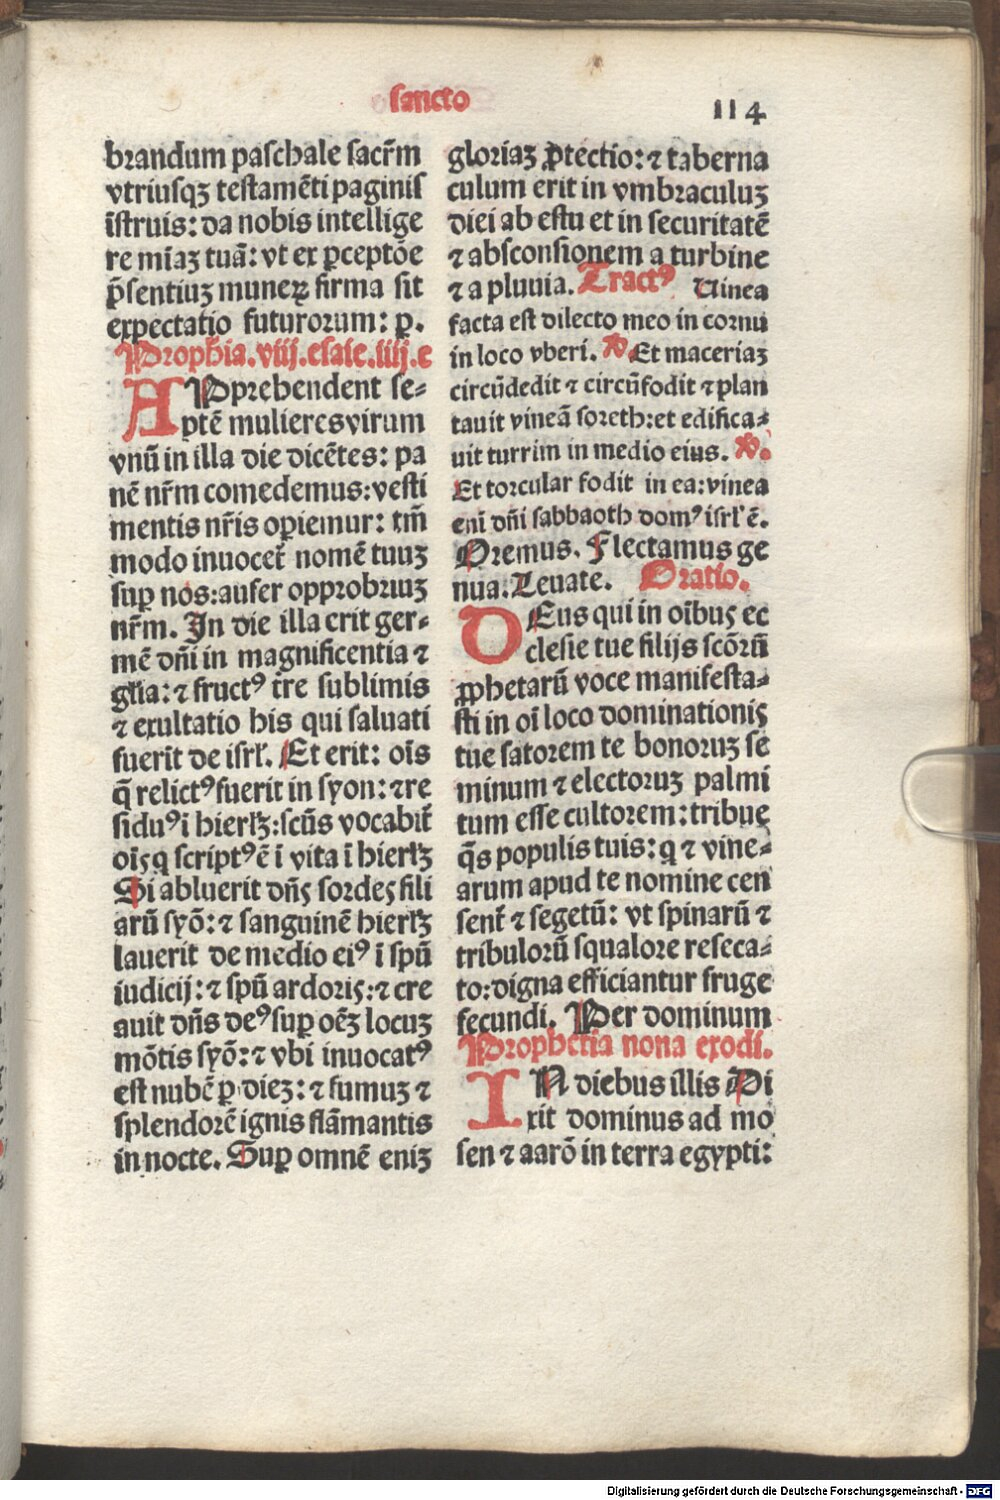 sancto
114
brandum paschale sacr̄m
vtriusqʒ testamēti paginis
īstruis: da nobis intellige
re mīaʒ tuā: vt ex ꝑceptōe
p̄sentiuʒ muneꝝ firma sit
expectatio futurorum: p.
Prophīa.viij.esaie.iiij.c
APprehendent se-
ptē mulieres virum
vnū in illa die dicētes: pa
nē nr̄m comedemus: vesti
mentis nr̄is opiemur: tm̄
modo inuocet̄ nomē tuuʒ
suꝑ nos: aufer opprobriuʒ
nr̄m. In die illa erit ger-
mē dn̄i in magnificentia ⁊
gl̄ia: ⁊ fructꝰ tr̄e sublimis
⁊ exultatio his qui saluati
fuerīt de isrl̄. Et erit: oīs
q̄ relictꝰ fuerit in syon: ⁊ re
siduꝰ ī hierl̄ʒ: scūs vocabit̄
oīs q scriptꝰ ē ī vita ī hierl̄ʒ
Si abluerit dn̄s sordes fili
arū syō: ⁊ sanguinē hierl̄ʒ
lauerit de medio eiꝰ ī spū
iudicij: ⁊ spū ardoris: ⁊ cre
auit dn̄s deꝰ suꝑ oēʒ locuʒ
mōtis syō: ⁊ vbi inuocatꝰ
est nubē ꝑ dieʒ: ⁊ fumuʒ ⁊
splendorē ignis flāmantis
in nocte. Suꝑ omnē eniʒ
gloriaʒ ꝓtectio: ⁊ taberna
culum erit in vmbraculuʒ
diei ab estu et in securitatē
⁊ absconsionem a turbine
⁊ a pluuia. Tractꝰ Uinea
facta est dilecto meo in cornu
in loco vberi. ℣ Et maceriaʒ
circūdedit ⁊ circūfodit ⁊ plan
tauit vineā soreth: et edifica-
uit turrim in medio eius. ℣.
Et torcular fodit in ea: vinea
enī dn̄i sabbaoth domꝰ isrl̄ ē.
Oremus. Flectamus ge
nua. Leuate. Oratio.
DEus qui in oībus ec
clesie tue filijs scōrū
ꝓphetarū voce manifesta-
sti in oī loco dominationis
tue satorem te bonoruʒ se
minum ⁊ electoruʒ palmi
tum esse cultorem: tribue
q̄s populis tuis: q ⁊ vine-
arum apud te nomine cen
sent̄ ⁊ segetū: vt spinarū ⁊
tribulorū squalore reseca-
to: digna efficiantur fruge
fecundi. Per dominum
Prophetia nona exodi.
IN diebus illis Di
xit dominus ad mo
sen ⁊ aarō in terra egypti:
Digitalisierung gefördert durch die Deutsche Forschungsgemeinschaft - DFG